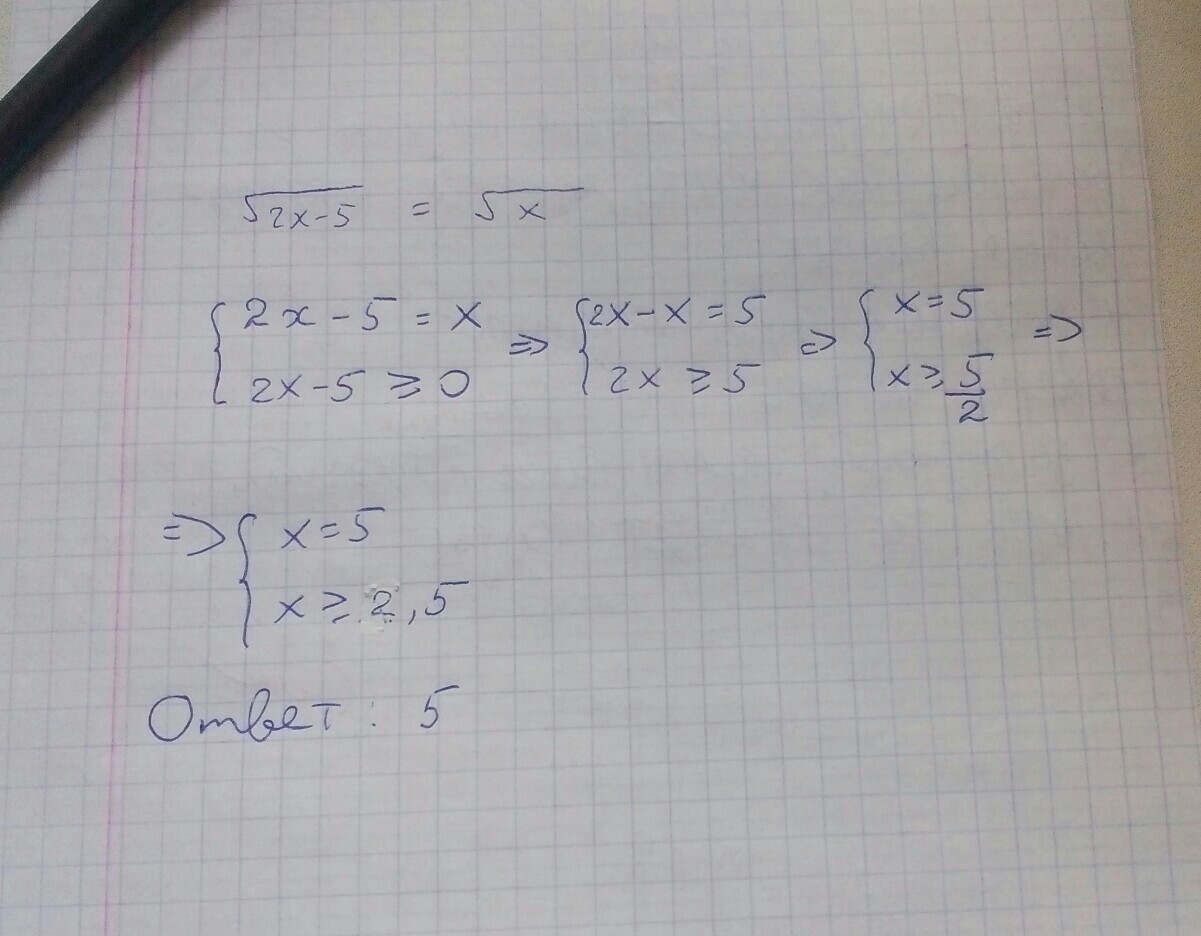 √2x-5 = √x
{ 2x-5 = x => { 2x-x = 5 => { x=5 =>
{ 2x-5 ≥ 0 { 2x ≥ 5 { x ≥ 5/2
=> { x=5
{ x ≥ 2,5
Ответ: 5